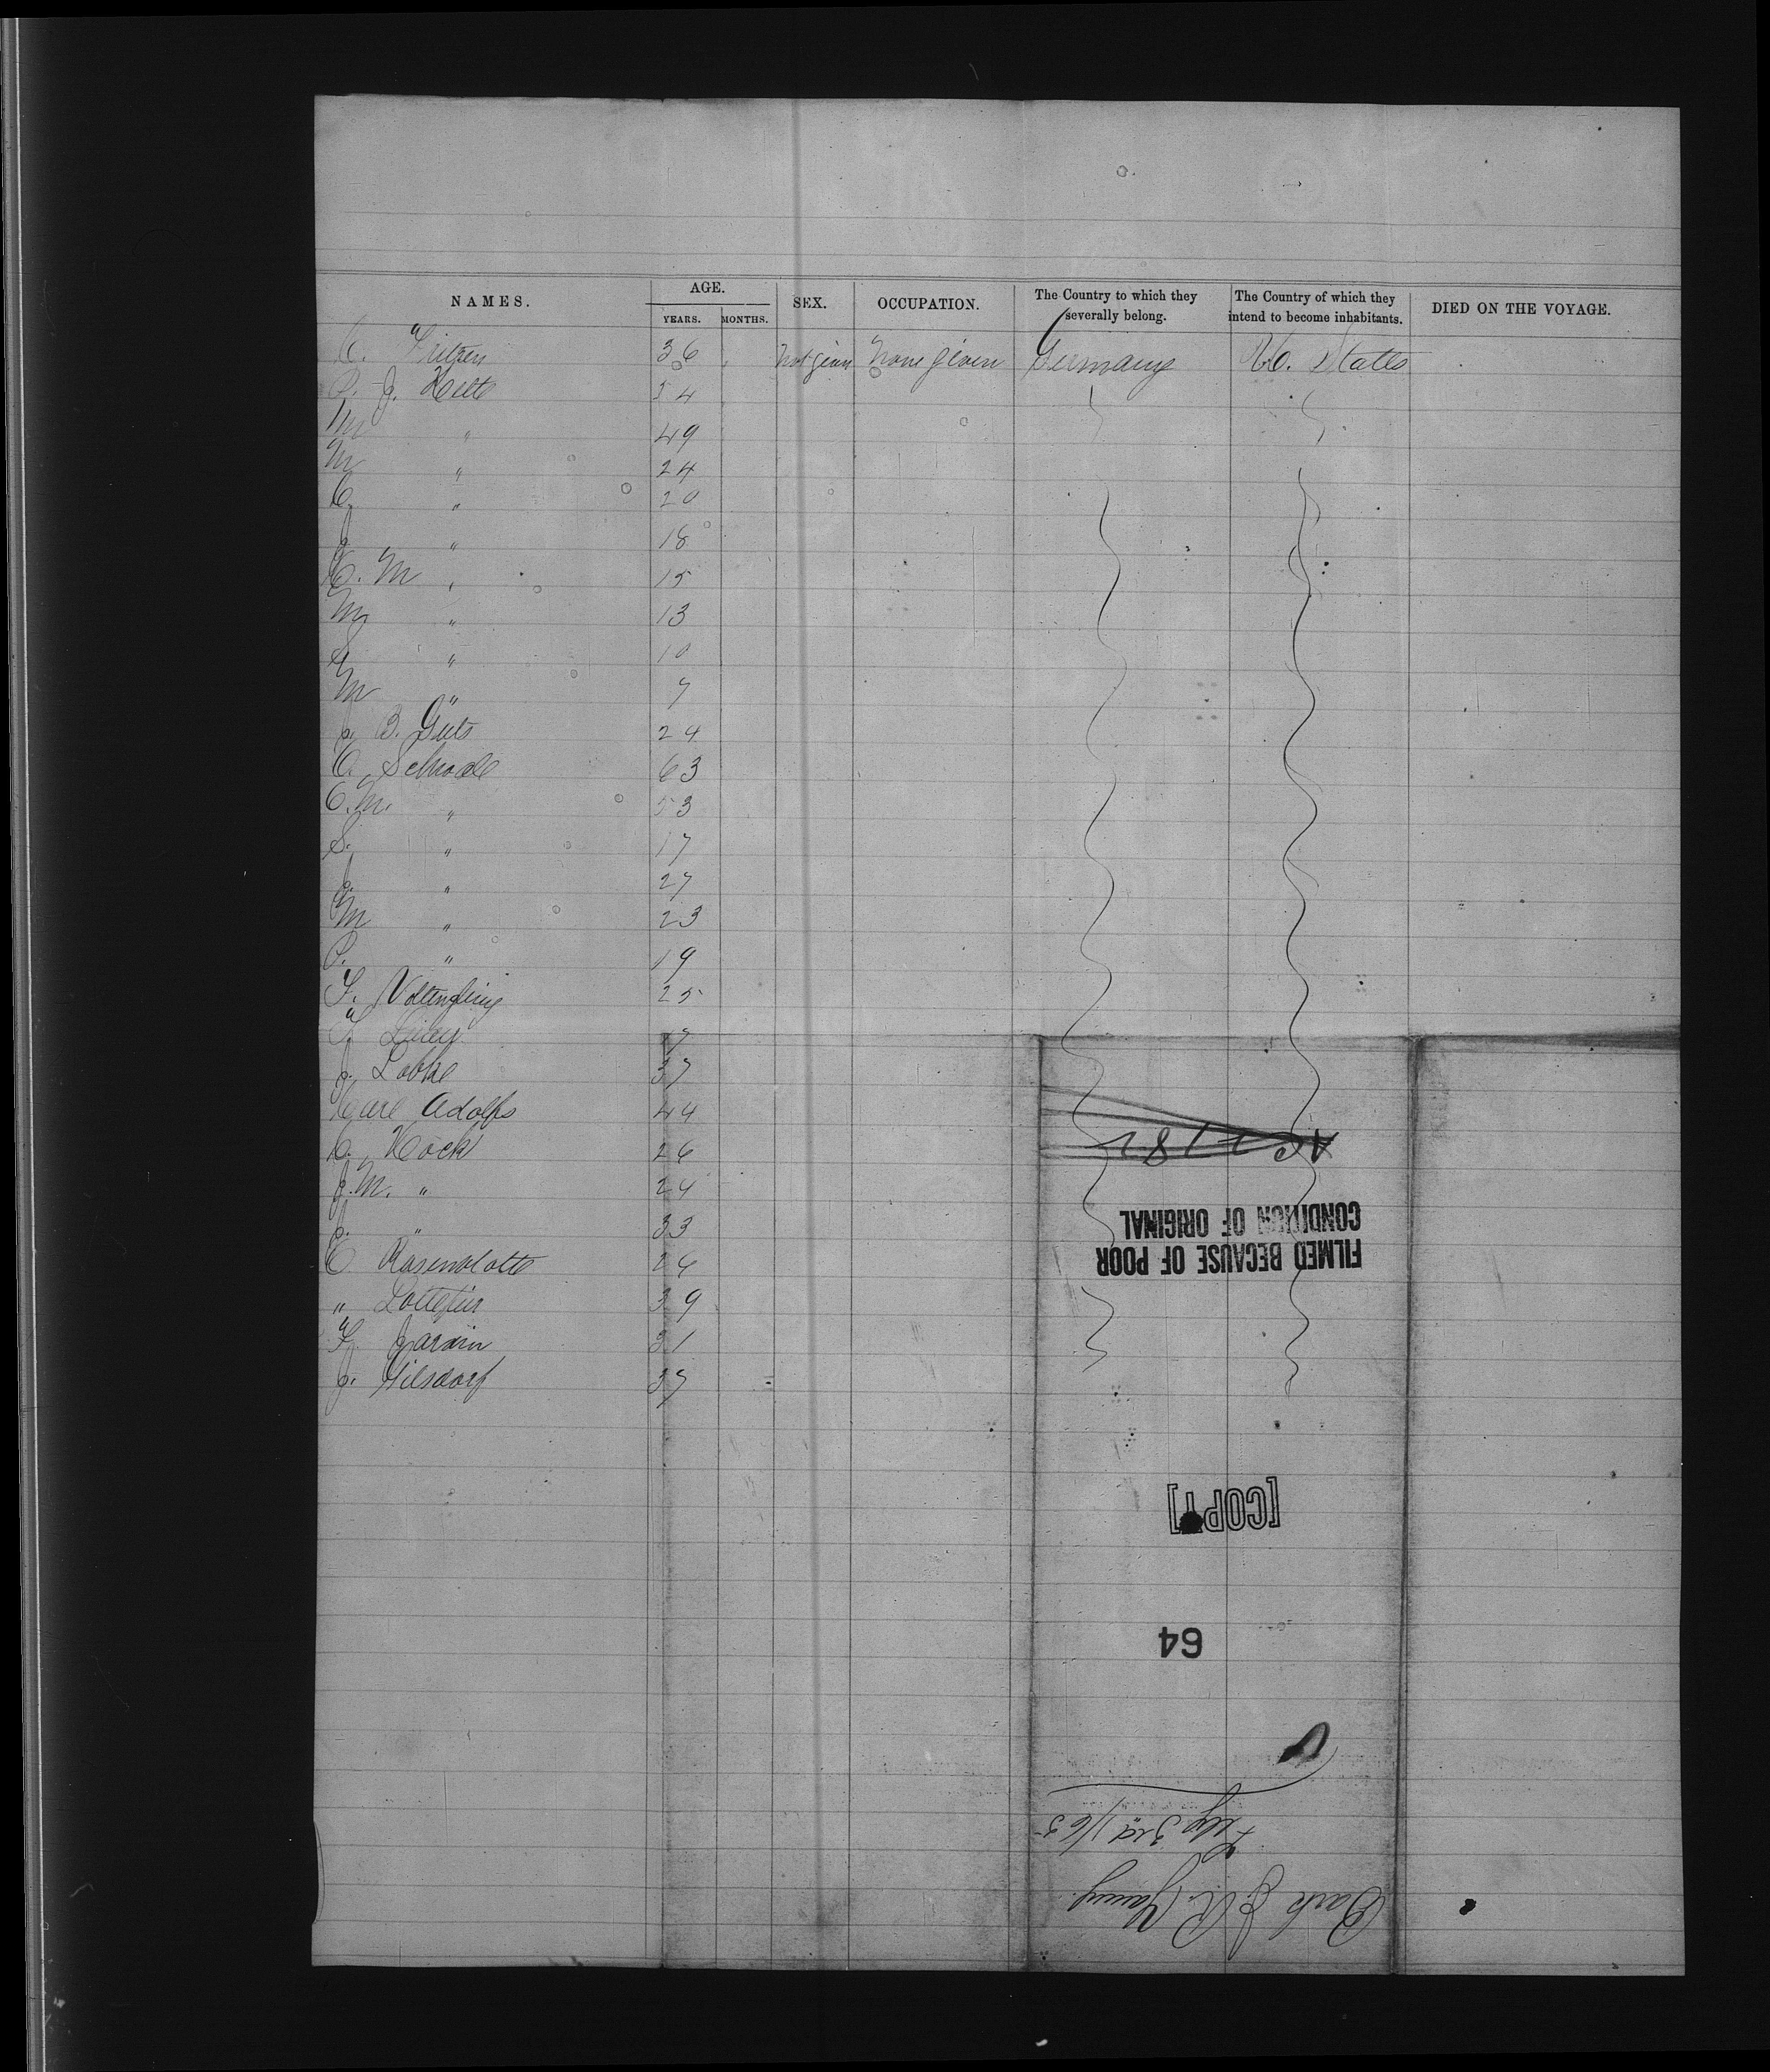 NAMES. AGE. SEX. OCCUPATION. The Country to which they severally belong. The Country of which they intend to become inhabitants. DIED ON THE VOYAGE.
YEARS. MONTHS.
C. Fritzen 36 Not given None given Germany U. States
P. J. Helte 54
M " 49
M " 24
C. " 20
J " 18
C. M " 15
M " 13
S " 10
M " 7
J. B. Guts 24
C. Schrodle 63
C. M. " 53
S. " 17
J. " 27
M " 23
P. " 19
F. 25
F 17
J. Lobke 37
Carl Adolfs 44
C. Kock 26
J. M. " 24
J. " 33
C Rosenblotte 24
" 39
F. Jardin 31
J. Gilsdorf 37
FILMED BECAUSE OF POOR
CONDITION OF ORIGINAL
[COPY]
64
Bark J. R. Young
3rd 1/65